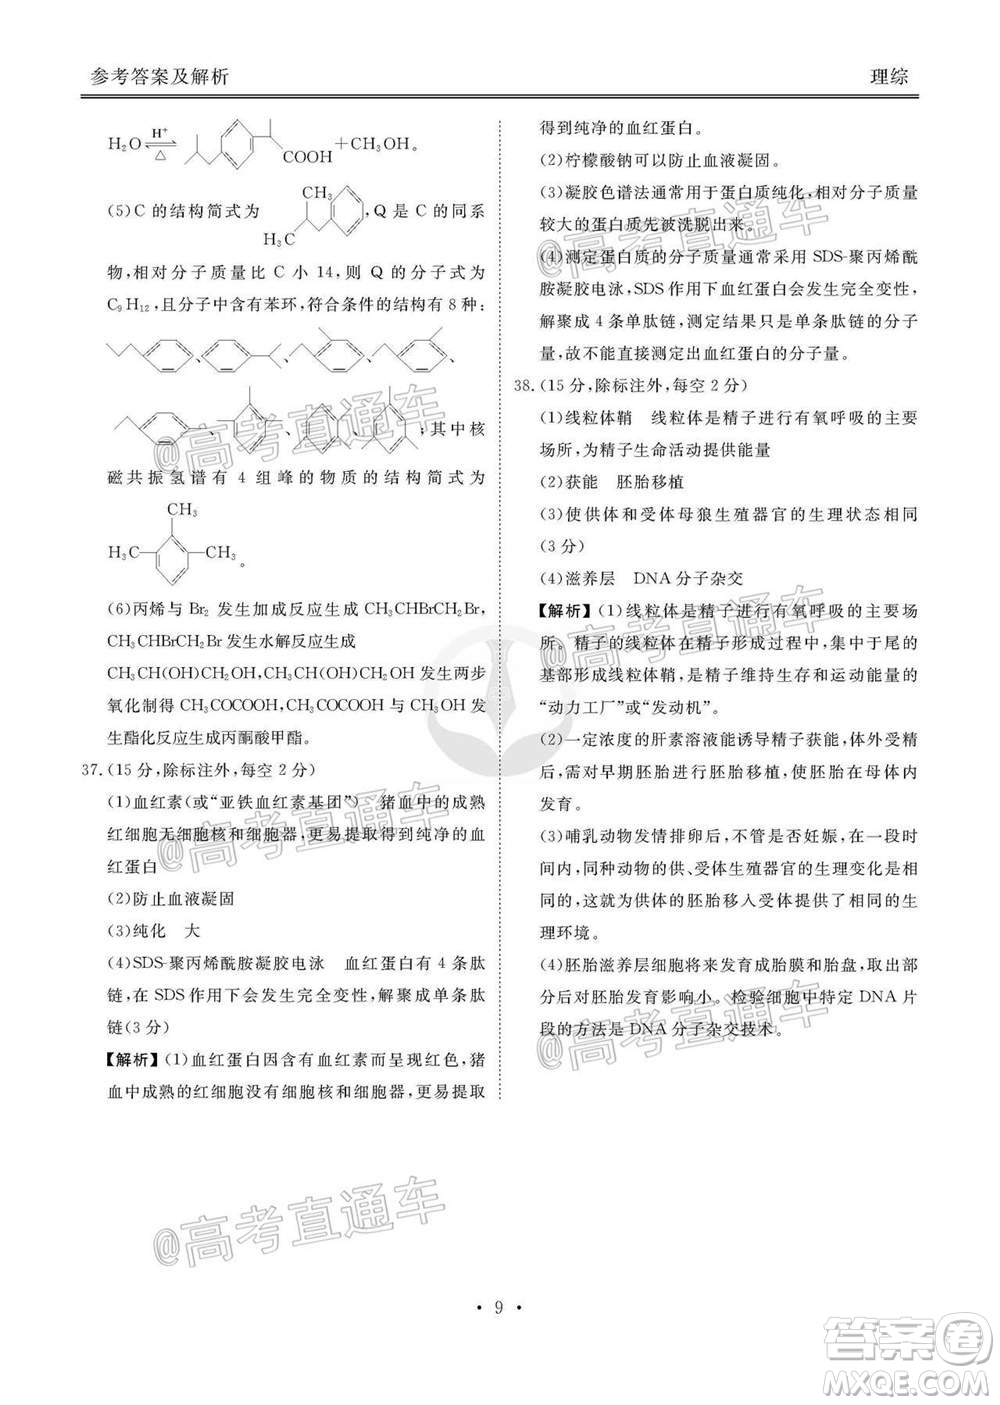 参考答案及解析 理综
H₂O ⇌ H⁺ △ COOH ＋CH₃OH。
(5)C 的结构简式为 CH₃ H₃C ,Q 是 C 的同系
物,相对分子质量比 C 小 14,则 Q 的分子式为
C₉H₁₂,且分子中含有苯环,符合条件的结构有 8 种:
、 、 、 、
、 、 、 ;其中核
磁共振氢谱有 4 组峰的物质的结构简式为
CH₃
H₃C CH₃ 。
(6)丙烯与 Br₂ 发生加成反应生成 CH₃CHBrCH₂Br,
CH₃CHBrCH₂Br 发生水解反应生成
CH₃CH(OH)CH₂OH,CH₃CH(OH)CH₂OH 发生两步
氧化制得 CH₃COCOOH,CH₃COCOOH 与 CH₃OH 发
生酯化反应生成丙酮酸甲酯。
37.(15 分,除标注外,每空 2 分)
(1)血红素(或“亚铁血红素基团”) 猪血中的成熟
红细胞无细胞核和细胞器,更易提取得到纯净的血
红蛋白
(2)防止血液凝固
(3)纯化 大
(4)SDS-聚丙烯酰胺凝胶电泳 血红蛋白有 4 条肽
链,在 SDS 作用下会发生完全变性,解聚成单条肽
链(3 分)
【解析】(1)血红蛋白因含有血红素而呈现红色,猪
血中成熟的红细胞没有细胞核和细胞器,更易提取
得到纯净的血红蛋白。
(2)柠檬酸钠可以防止血液凝固。
(3)凝胶色谱法通常用于蛋白质纯化,相对分子质量
较大的蛋白质先被洗脱出来。
(4)测定蛋白质的分子质量通常采用 SDS-聚丙烯酰
胺凝胶电泳,SDS 作用下血红蛋白会发生完全变性,
解聚成 4 条单肽链,测定结果只是单条肽链的分子
量,故不能直接测定出血红蛋白的分子量。
38.(15 分,除标注外,每空 2 分)
(1)线粒体鞘 线粒体是精子进行有氧呼吸的主要
场所,为精子生命活动提供能量
(2)获能 胚胎移植
(3)使供体和受体母狼生殖器官的生理状态相同
(3 分)
(4)滋养层 DNA 分子杂交
【解析】(1)线粒体是精子进行有氧呼吸的主要场
所。精子的线粒体在精子形成过程中,集中于尾的
基部形成线粒体鞘,是精子维持生存和运动所需的
“动力工厂”或“发动机”。
(2)一定浓度的肝素溶液能诱导精子获能,体外受精
需对早期胚胎进行胚胎移植,使胚胎在母体内
发育。
(3)哺乳动物发情排卵后,不管是否妊娠,在一段时
间内,同种动物的供、受体生殖器官的生理变化是相
同的,这就为供体的胚胎移入受体提供了相同的生
理环境。
(4)胚胎滋养层细胞将来发育成胎膜和胎盘,取样
对胚胎发育影响小。检验细胞中特定 DNA 片
段的方法是 DNA 分子杂交技术。
@高考直通车
@高考直通车
@高考直通车
@高考直通车
@高考直通车
@高考直通车
@高考直通车
@高考直通车
• 9 •
答案卷
MXQE.COM